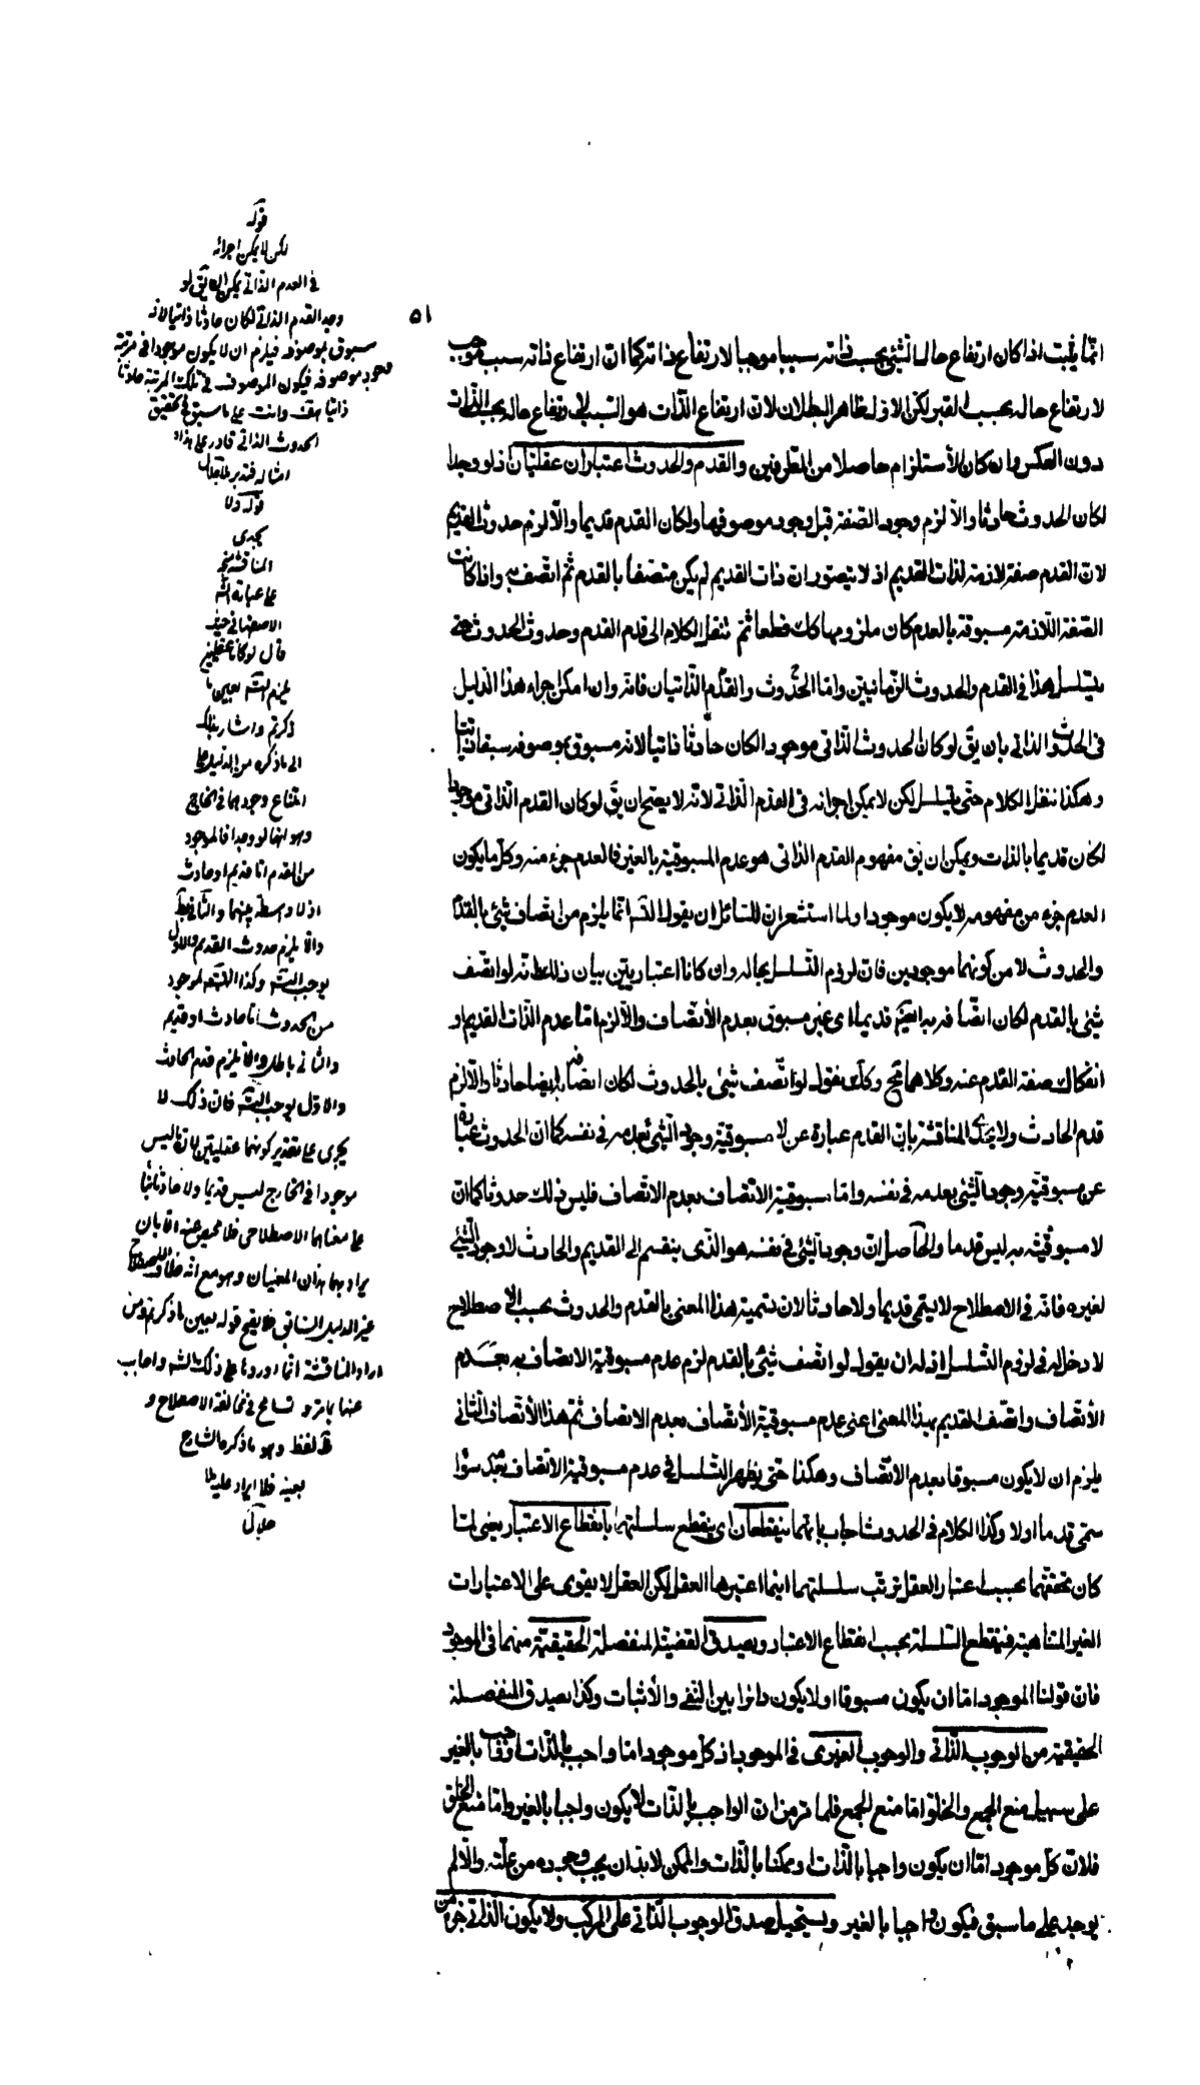 ٥١
انما يثبت اذا كان ارتفاع حال الشئ بحسب ذاته سببا موجبا لارتفاع ذاته كما ان ارتفاع ذاته سبب موجب
لارتفاع حاله بحسب الغير لكن الاول ظاهر البطلان لان ارتفاع الذات هو السبب لارتفاع حاله بحسب الذات
دون العكس وان كان الاستلزام حاصلا من الطرفين والقدم والحدوث اعتباران عقليان اذ لو وجدا
لكان الحدوث حادثا والا لزم وجود الصفة قبل وجود موصوفها ولكان القدم قديما والا لزم حدوث القديم
لان القدم صفة لازمة لذات القديم اذ لا يتصور ان ذات القديم لم يكن متصفا بالقدم ثم اتصف به واذا كانت
الصفة اللازمة مسبوقة بالعدم كان ملزومها كك قطعا ثم ننقل الكلام الى قدم القدم وحدوث الحدوث حتى
يتسلسل هذا فى القدم والحدوث الزمانيين واما الحدوث والقدم الذاتيان فانه وان امكن اجراء هذا الدليل
فى الحدوث الذاتى بان يق لو كان الحدوث الذاتى موجودا لكان حادثا ذاتيا لانه مسبوق بموصوفه سبقا ذاتيا
وهكذا ننقل الكلام حتى يتسلسل لكن لا يمكن اجرائه فى القدم الذاتى لانه لا يصح ان يق لو كان القدم الذاتى موجودا
لكان قديما بالذات ويمكن ان يق مفهوم القدم الذاتى هو عدم المسبوقية بالغير فالعدم جزء منه وكل ما يكون
العدم جزء من مفهومه لا يكون موجودا ولما استشعر ان للسائل ان يقول التسلسل انما يلزم من اتصاف شئ بالقدم
والحدوث لا من كونهما موجودين فان لزوم التسلسل بحاله وان كانا اعتباريين بيان ذلك انه لو اتصف
شئ بالقدم لكان اتصافه به ايضا قديما اى غير مسبوق بعدم الاتصاف والا لزم اما عدم الذات القديم او
انفكاك صفة القدم عنه وكلاهما مح وكك نقول لو اتصف شئ بالحدوث لكان اتصافه به ايضا حادثا والا لزم
قدم الحادث ولا يجدى المناقشة بان القدم عبارة عن لا مسبوقية وجود الشئ بعدمه فى نفسه كما ان الحدوث عبارة
عن مسبوقية وجود الشئ بعدمه فى نفسه واما مسبوقية الاتصاف بعدم الاتصاف فليس ذلك حدوثا كما ان
لا مسبوقيته به ليس قدما والحاصل ان وجود الشئ فى نفسه هو الذى ينقسم الى القديم والحادث لا وجود الشئ
لغيره فانه فى الاصطلاح لا يسمى قديما ولا حادثا لان تسمية هذا المعنى بالقدم والحدوث بحسب الاصطلاح
لا دخل له فى لزوم التسلسل اذ له ان يقول لو اتصف شئ بالقدم لزم عدم مسبوقية الاتصاف به بعدم
الاتصاف واتصف القديم بهذا المعنى اعنى عدم مسبوقية الاتصاف بعدم الاتصاف ثم هذا الاتصاف الثانى
يلزم ان لا يكون مسبوقا بعدم الاتصاف وهكذا حتى يظهر التسلسل فى عدم مسبوقية الاتصاف بعدمه سواء
سمى قدما او لا وكذا الكلام فى الحدوث اجاب بانهما ينقطعان اى ينقطع سلسلتهما بانقطاع الاعتبار يعنى لما
كان تحققهما بحسب اعتبار العقل ترتب سلسلتهما اينما اعتبرها العقل لكن العقل لا يقوى على الاعتبارات
الغير المتناهية فينقطع السلسلة بحسب انقطاع الاعتبار ويصدق القضية المنفصلة الحقيقية منهما فى الموجود
فان قولنا الموجود اما ان يكون مسبوقا او لا يكون دائرا بين النفى والاثبات وكذا يصدق المنفصلة
الحقيقية من الوجوب الذاتى والوجوب الغيرى فى الموجود اذ كل موجود اما واجب بالذات او واجب بالغير
على سبيل منع الجمع والخلو اما منع الجمع فلما مر من ان الواجب بالذات لا يكون واجبا بالغير واما منع الخلو
فلان كل موجود اما ان يكون واجبا بالذات او ممكنا بالذات والممكن لا بد ان يجب وجوده من علته والا لم
يوجد على ما سبق فيكون واجبا بالغير ويستحيل صدق الوجوب الذاتى على المركب ولا يكون الذاتى جزء من
قوله
لكن لا يمكن اجرائه
فى العدم الذاتى يمكن ان يق لو
وجد القدم الذاتى لكان حادثا ذاتيا لانه
مسبوق بموصوفه فيلزم ان لا يكون موجودا فى مرتبة
وجود موصوفه فيكون الموصوف فى تلك المرتبة حادثا
ذاتيا هف وانت على ما سبق فى تحقيق
الحدوث الذاتى قادر على هذا
امثاله فتدبر
قوله ولا
يجدى
المناقشة
على عبارة
الاصفهانى حيث
قال لو كانا عقليين
يلزم التسلسل بعين ما
ذكرتم واشار بذلك
الى ما ذكره من الدليل على
امتناع وجودهما فى الخارج
وهو انهما لو وجدا فالموجود
من القدم اما قديم او حادث
اذ لا واسطة بينهما والثانى بط
والا يلزم حدوث القديم والاول
يوجب التسلسل وكذا الموجود
من الحدوث اما حادث او قديم
والثانى باطل والا يلزم قدم الحادث
والاول يوجب التسلسل فان ذلك لا
يجرى على تقدير كونهما عقليتين لان ما ليس
موجودا فى الخارج ليس قديما ولا حادثا
على معناهما الاصطلاحى فلا محيص عنه الا بان
يراد بهما هذان المعنيان وهو مع انه خلاف الاصطلاح
غير الدليل السابق فلا يصح قوله بعين ما ذكرتم ومن
اراد المناقشة انما اوردها على ذلك واجاب
عنها بانه لا تسامح فى مخالفة الاصطلاح و
اللفظ وهو ما ذكره الشارح
بعينه فلا ايراد عليه
جلال